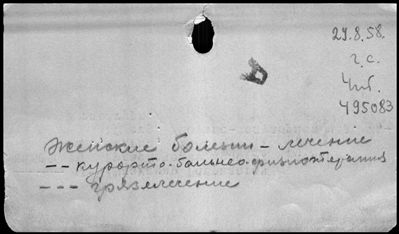 29.8.58.
г. с.
Чит.
495083
Женские болезни - лечение
-- курорто-бальнео-физиотерапия
--- грязелечение